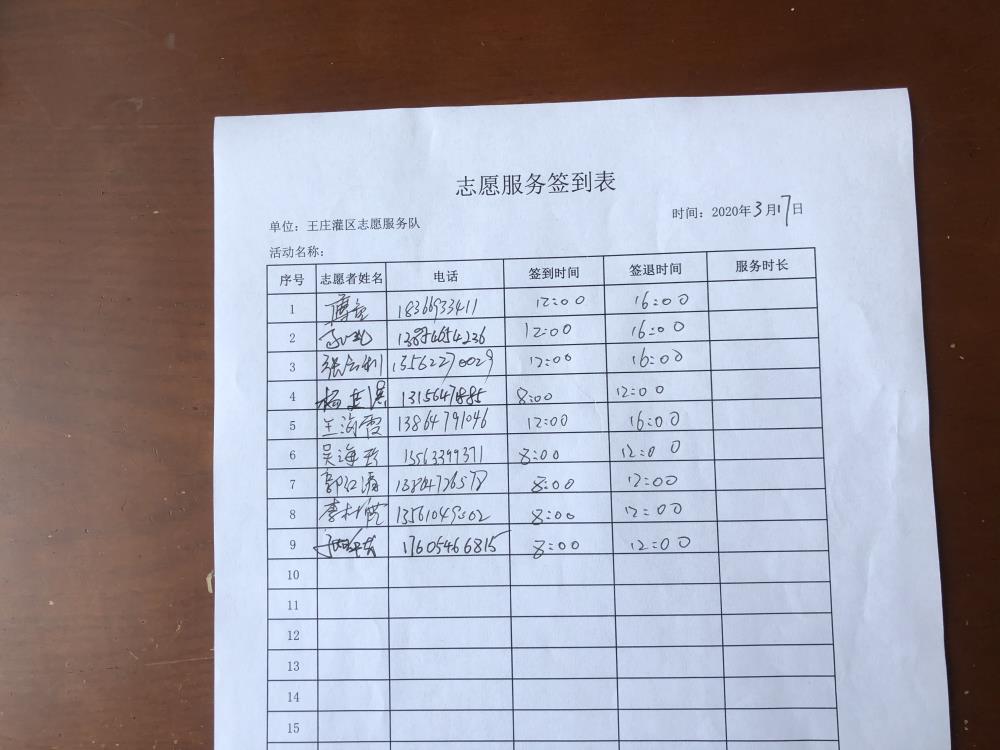 志愿服务签到表
单位：王庄灌区志愿服务队
时间：2020年3月17日
活动名称：
序号 志愿者姓名 电话 签到时间 签退时间 服务时长
1 18366933411 12:00 16:00
2 12:00 16:00
3 13562270029 12:00 16:00
4 8:00 12:00
5 王海霞 13864791046 12:00 16:00
6 吴海 13563399371 8:00 12:00
7 郭红涛 13864726578 8:00 12:00
8 李 8:00 12:00
9 17605466815 8:00 12:00
10
11
12
13
14
15